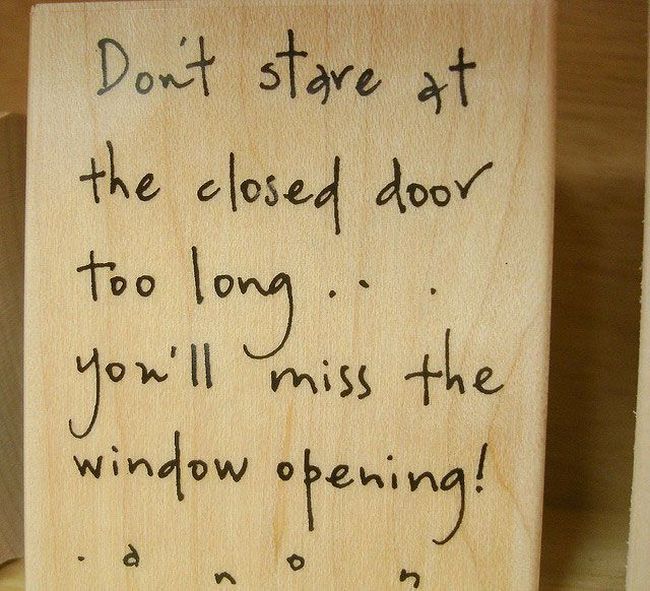 Don't stare at
the closed door
too long . . .
you'll miss the
window opening!
. anon